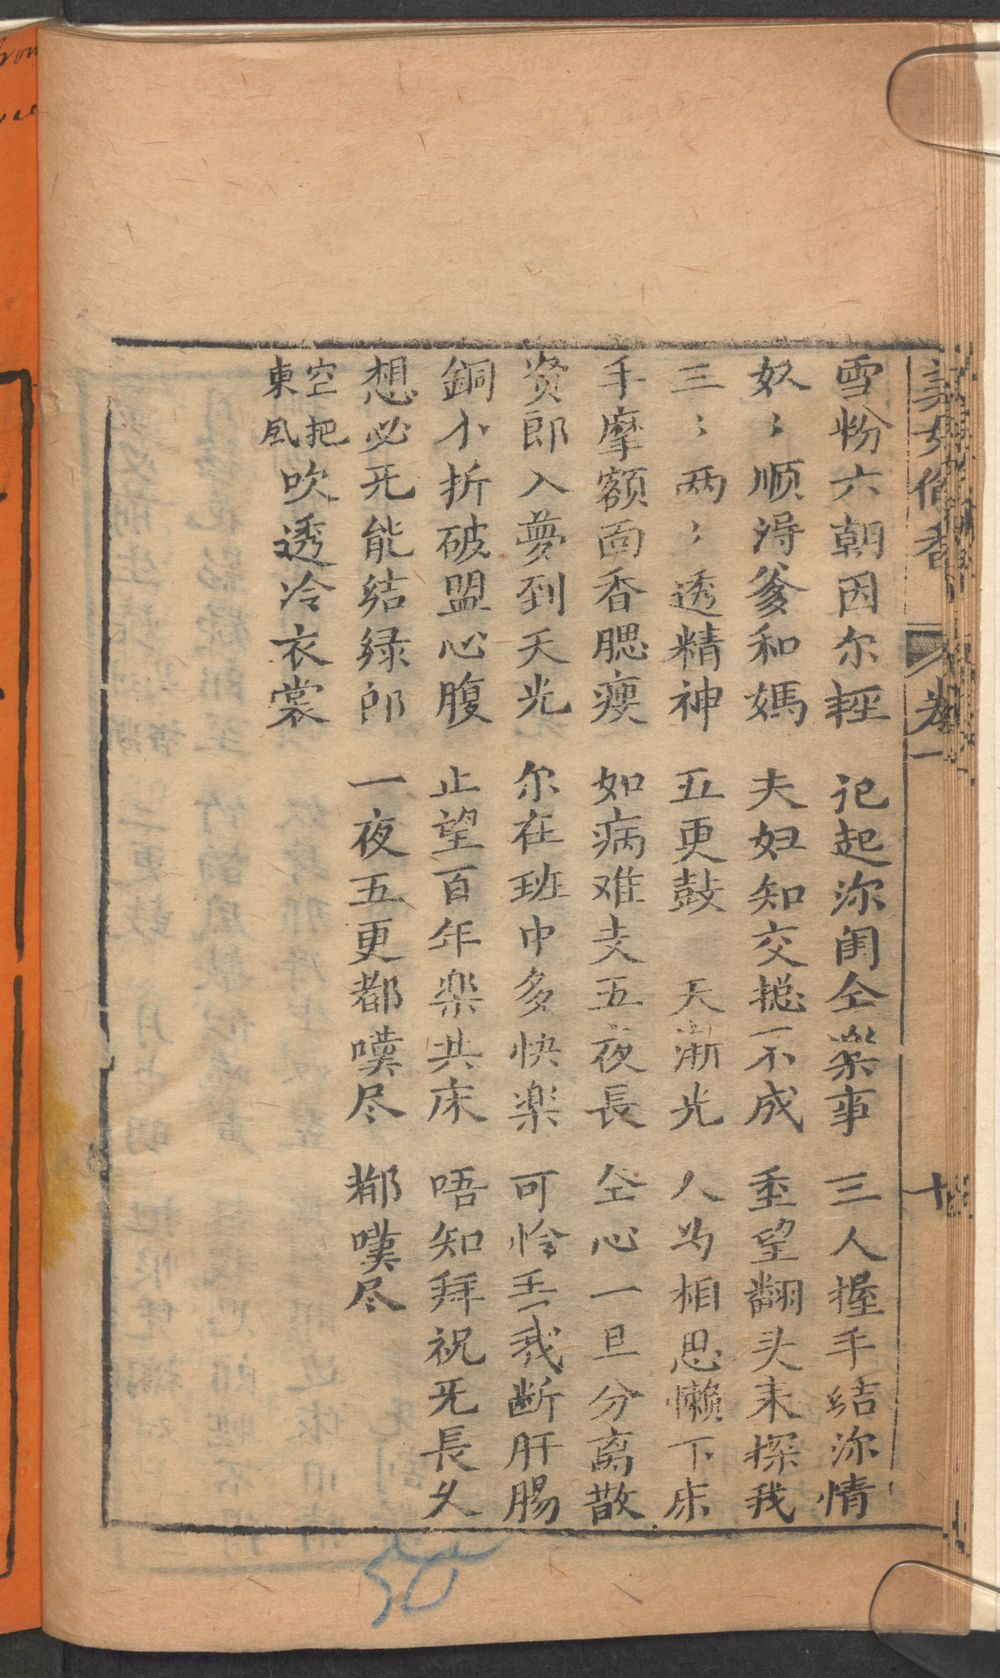 雪粉六朝因尔輕 记起沵閨仝楽事 三人握手结沵情
奴〻顺淂爹和媽 夫妇知交摠不成 垂望翻头来探我
三〻两〻透精神 五更鼓 天漸光 人为相思懒下床
手摩额面香腮瘦 如病难支五夜長 仝心一旦分离散
资郎入夢到天光 尔在班中多快楽 可怜丟我断肝腸
銅小折破盟心腹 止望百年楽共床 唔知拜祝旡長久
想必旡能结绿郎 一夜五更都嘆尽 都嘆尽
空把東風吹透冷衣裳
卷一
十
50